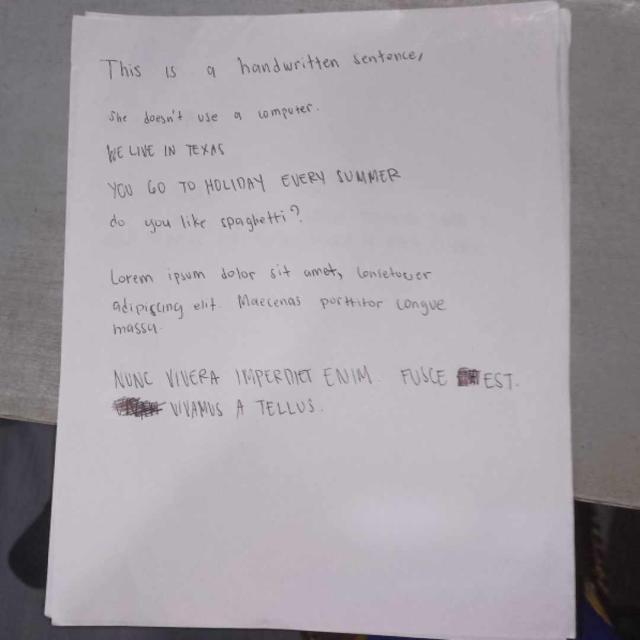 This is a handwritten sentence,
She doesn't use a computer.
WE LIVE IN TEXAS
YOU GO TO HOLIDAY EVERY SUMMER
do you like spaghetti?
Lorem ipsum dolor sit amet, consetouer
adipiscing elit. Maecenas porttitor congue
massa.
NUNC VIVERA IMPERDIET ENIM. FUSCE EST.
VIVAMUS A TELLUS.